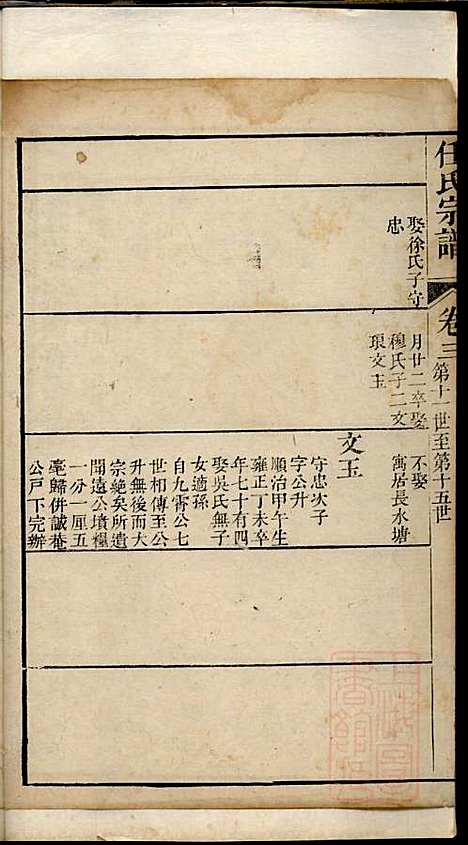 任氏宗譜
卷三
第十一世至第十五世
娶徐氏子守
忠
月廿二卒娶
穆氏子二文
琅文玉
不娶
寓居長水塘
文玉
守忠次子
字公升
順治甲午生
雍正丁未卒
年七十有四
娶吳氏無子
女適孫
自九霄公七
世相傳至公
升無後而大
宗絕矣所遺
開遠公墳糧
一分一厘五
毫歸併誠菴
公戶下完辦